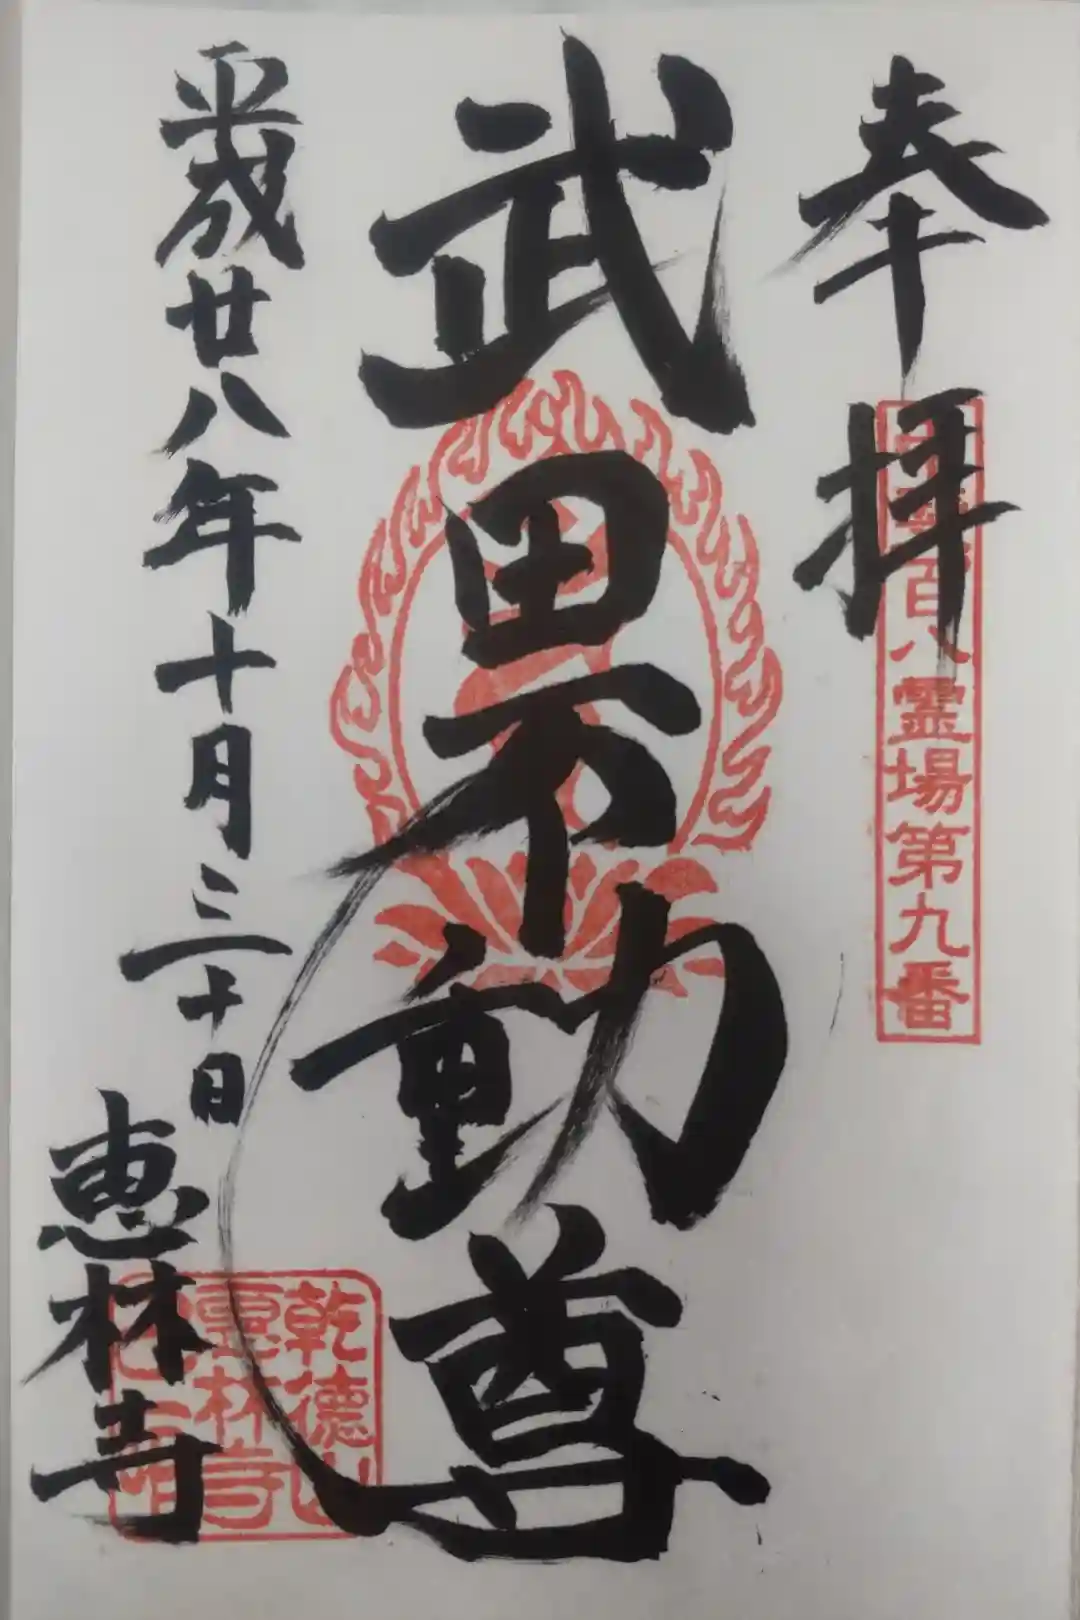 奉拝
甲斐百八霊場第九番
武田不動尊
平成廿八年十月三十日
恵林寺
乾徳山
恵林寺